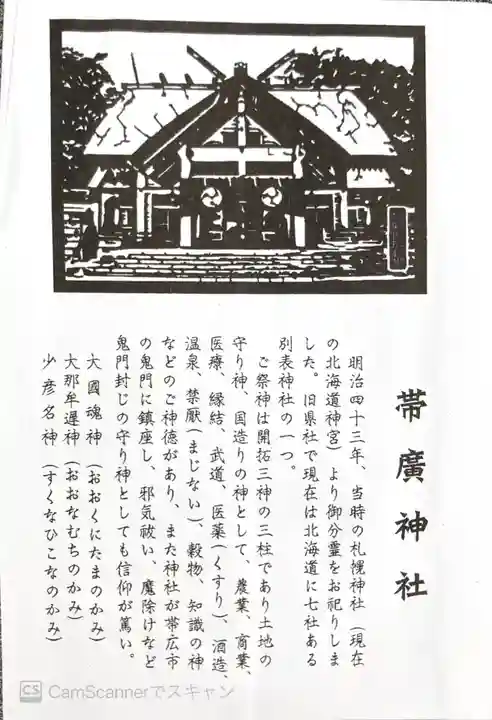 帯廣神社
明治四十三年、当時の札幌神社(現在
の北海道神宮)より御分霊をお祀りしま
した。旧県社で現在は北海道に七社ある
別表神社の一つ。
ご祭神は開拓三神の三柱であり土地の
守り神、国造りの神として、農業、商業、
医療、縁結、武道、医薬(くすり)、酒造、
温泉、禁厭(まじない)、穀物、知識の神
などのご神徳があり、また神社が帯広市
の鬼門に鎮座し、邪気祓い、魔除けなど
鬼門封じの守り神としても信仰が篤い。
大國魂神(おおくにたまのかみ)
大那牟遅神(おおなむちのかみ)
少彦名神(すくなひこなのかみ)
CS CamScannerでスキャン